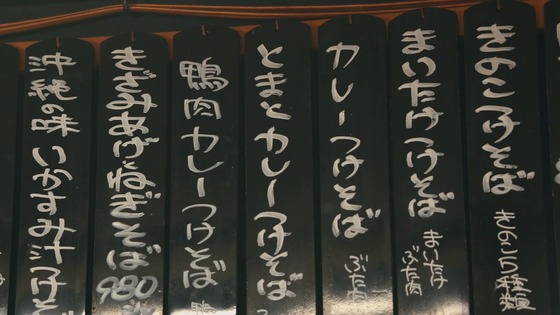 きのこつけそば
きのこ5種類
まいたけつけそば
まいたけ
ぶた肉
カレーつけそば
ぶた肉
とまとカレーつけそば
鴨肉カレーつけそば
きざみあげねぎそば
980
沖縄の味 いかすみ汁つけそ